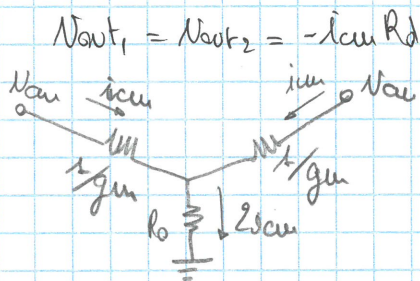 Vout₁ = Vout₂ = -icm Rd
Vcm icm icm Vcm
1/gm 1/gm
Ro 2icm